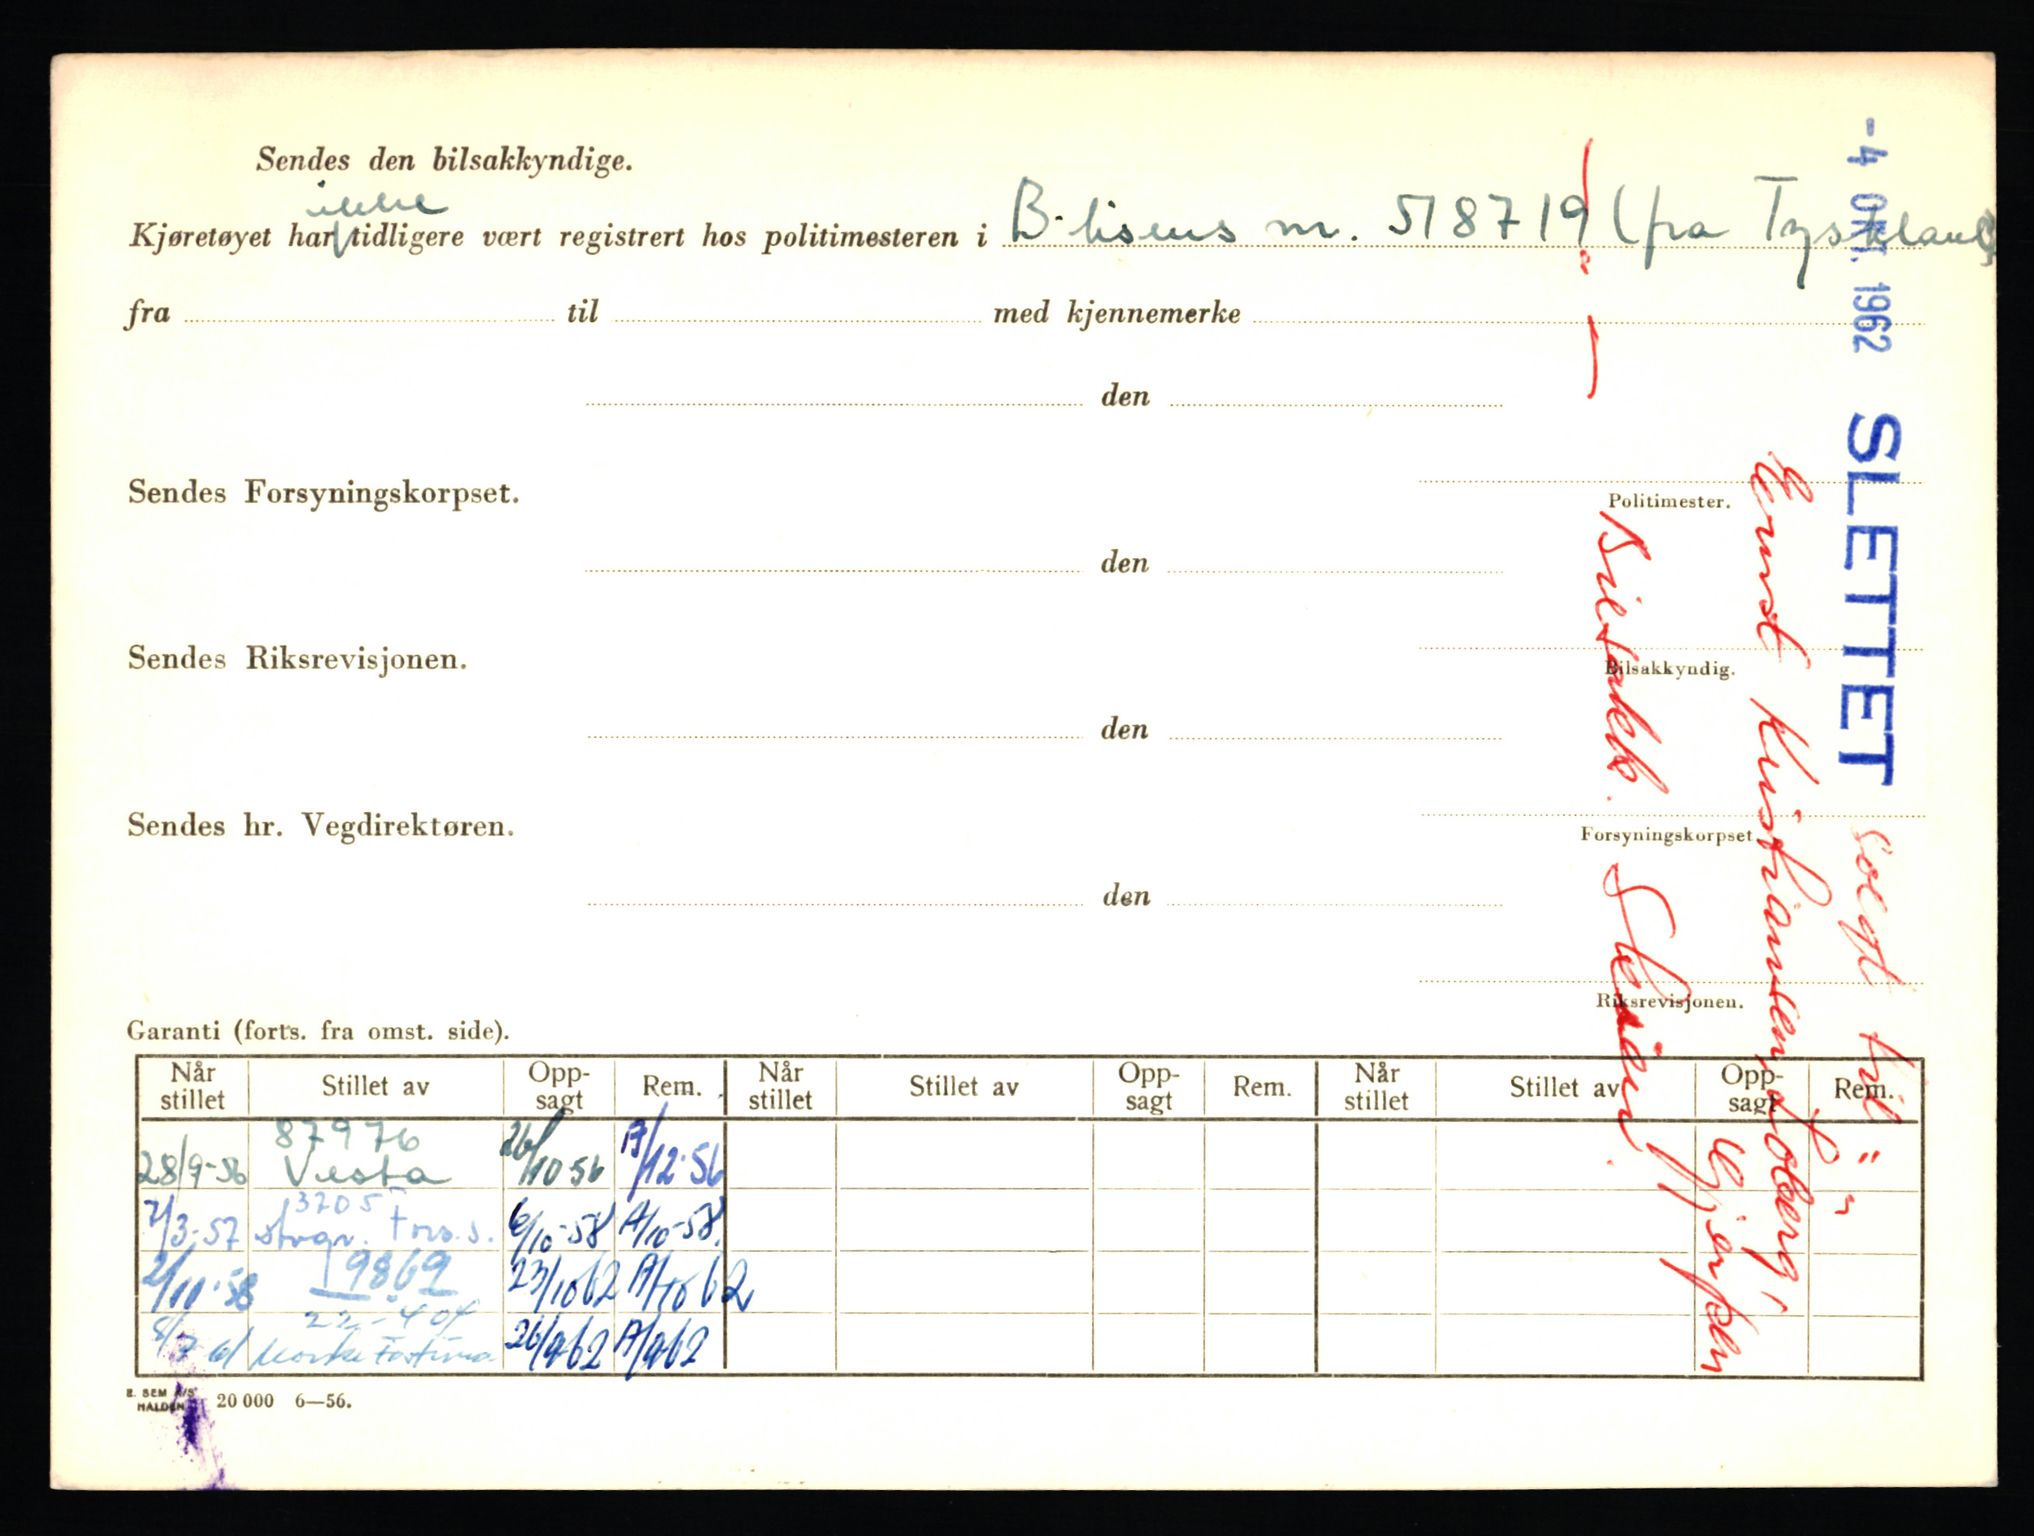 Sendes den bilsakkyndige.
ikke
Kjøretøyet har tidligere vært registrert hos politimesteren i B-lisens nr. 518719 (fra Tyskland
fra til med kjennemerke
den
Politimester.
Sendes Forsyningskorpset.
den
Bilsakkyndig.
Sendes Riksrevisjonen.
den
Forsyningskorpset.
Sendes hr. Vegdirektøren.
den
Riksrevisjonen.
Garanti (forts. fra omst. side).
Når stillet Stillet av Opp-sagt Rem. Når stillet Stillet av Opp-sagt Rem. Når stillet Stillet av Opp-sagt Rem.
87976
28/9-56 Vesta 26/10 56 /12-56
3705
7/3-57 Storgr. Fors.s. 6/10-58 A/10-58.
19869
2/10-58 23/10 62 A/10 62
22-404
8/7 61 Norske Fortuna 26/9 62 A/9 62
B. SEM A/S HALDEN 20 000 6—56.
-4 OKT. 1962 SLETTET solgt til
Ernst Kristiansen, Solberg,
Gjerpen
Bilsakk. Skien.